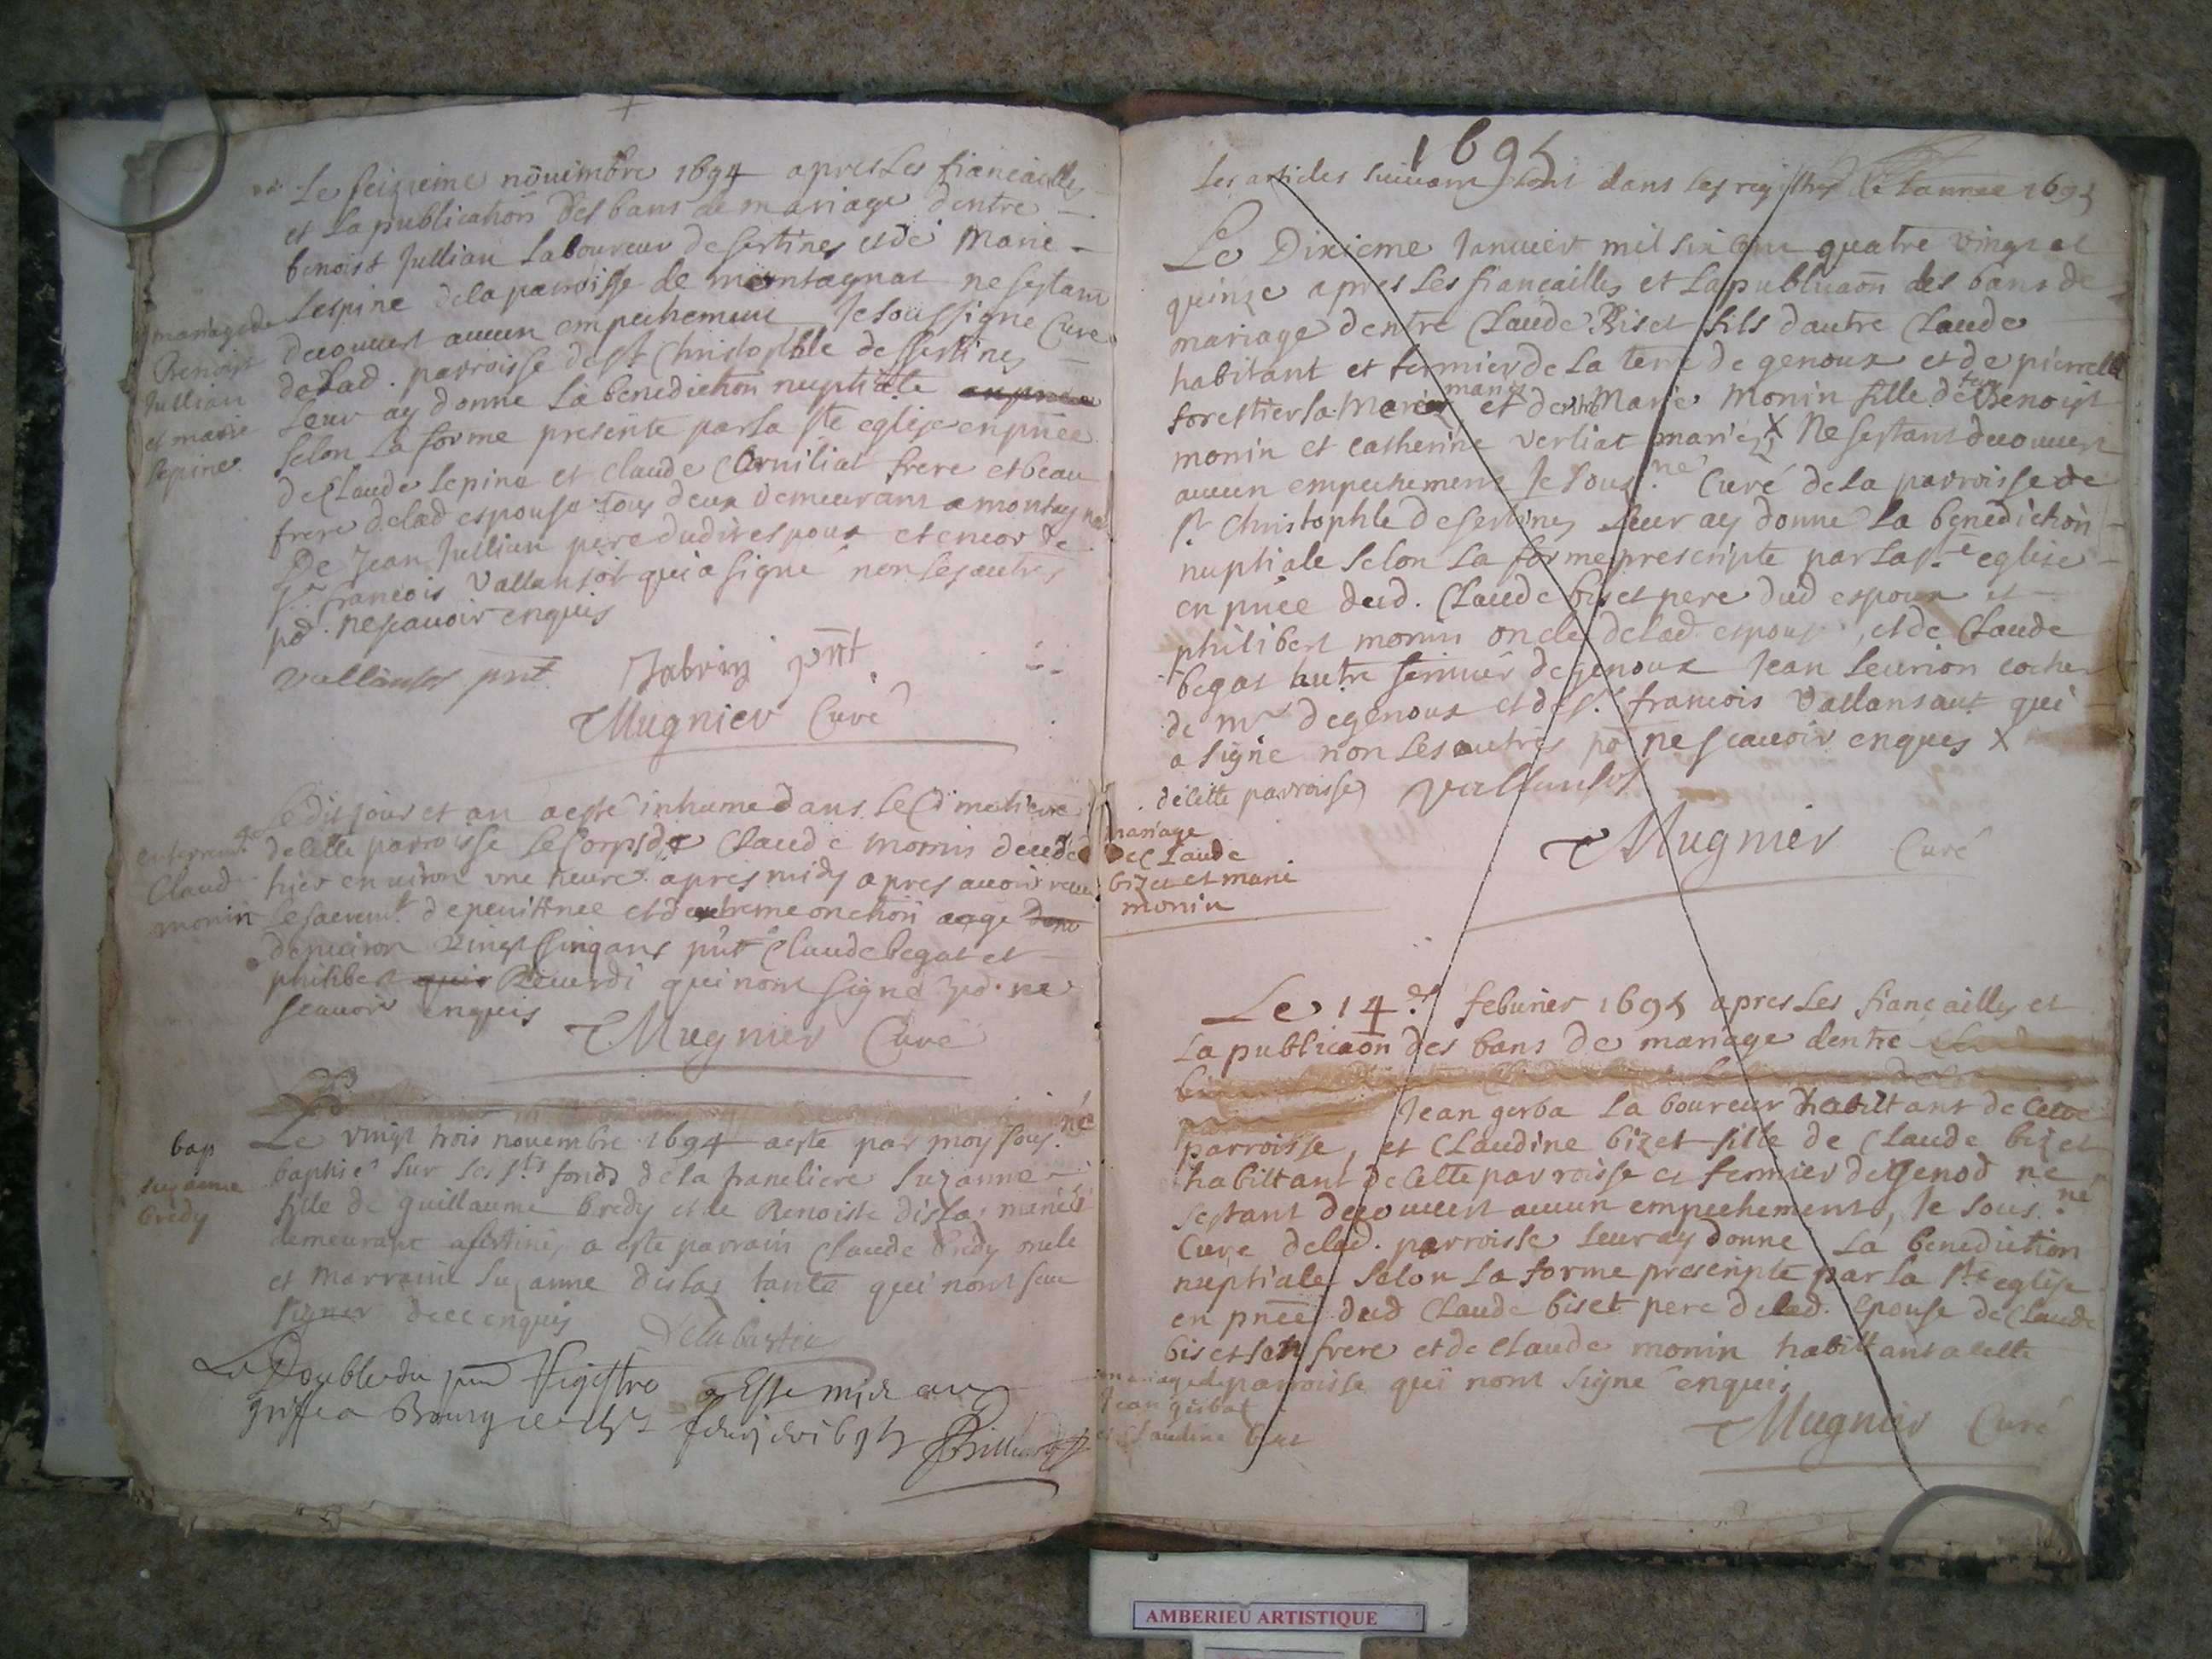 Le seizieme novembre 1694 apres les fiancailles
et la publication des bans de mariage dentre
benoist Jullian laboureur de sertines et de Marie
Lespine de la parroisse de montagnat ne sestant
decouvert aucun empechement Je soussigne Curé
de lad. parroisse de st Christophle de sertines
leur ay donne la benediction nuptiale
selon la forme presente par la ste eglise en pnce
de Claude Lepine et claude frere et beau
frere de lad espouse tous deux demeurans a montagnat
De Jean Jullian pere dudit espoux et encor de
Sr. francois Vallansot qui a signé non les autres
po. ne scavoir enquis
mariage de
Benoist
Jullian
et marie
lepine
Vallansot pnt Jabrin pnt
Mugnier Curé
Le dit jour et an a esté inhumé dans le Cimetiere
de cette parroisse le Corps de Claude monin decedé
hier environ une heure apres midy apres avoir receu
le sacremt de penitence et dextreme onction aagé
denviron vingt cinq ans pnt Claude begat et
philibert Revurdi qui nont signé po. ne
scavoir enquis
enterremt
Claude
monin
Mugnier Curé
Le vingt trois novembre 1694 a este par moy sous.né
baptisé sur les sts fonds de la franeliere Suzanne
fille de guillaume bredy et de Benoiste dislas mariés
demeurant a sertines a este parrain Claude bredy oncle
et marraine Suzanne dislas tante qui nont sceu
signer de ce enquis
bap
suzanne
bredy
Delabastie
Le Double du pnt Registre a Esté mis au
griffe a Bourg ce
1695
Les articles suivant sont dans les registres de lannee 1695
Le Dixieme Janvier mil six cent quatre vingt et
quinze apres les fiancailles et la publicaon des bans de
mariage dentre Claude Biset fils dautre Claude
habitant et fermier de la terre de genoux et de pierrette
forestier sa mariés et de Marie Monin fille de feu Benoist
monin et catherine verliat mariés X Ne sestant decouvert
aucun empechement Je sous.né Curé de la parroisse de
st Christophle de sertines leur ay donné la benediction
nuptiale selon la forme prescripte par la ste eglise
en pnce dud. Claude biset pere dud espoux et
philibert monin oncle de lad espouse, et de Claude
begat autre fermier de genoux Jean leurion cocher
de mr de genoux et de sr. francois Vallansaut qui
a signé non les autres po ne scavoir enques X
de cette parroisse Vallansot
mariage
de Claude
bizet et marie
monin
Mugnier Curé
Le 14e febvrier 1695 apres les fiançailles et
la publicaon des bans de mariage dentre
Jean gerba laboureur habittant de cette
parroisse, et Claudine bizet fille de Claude bizet
habittant de cette parroisse et fermier de Genod ne
sestant decouvert aucun empechement, Je sous.né
Curé de lad. parroisse leur ay donné la benediction
nuptiale selon la forme prescripte par la ste eglise
en pnce dud Claude biset pere de lad. epouse de Claude
biset son frere et de Claude monin habittant a cette
parroisse qui nont signé enquis
mariage de
Jean gerbat
et Claudine biset
Mugnier Curé
AMBERIEU ARTISTIQUE